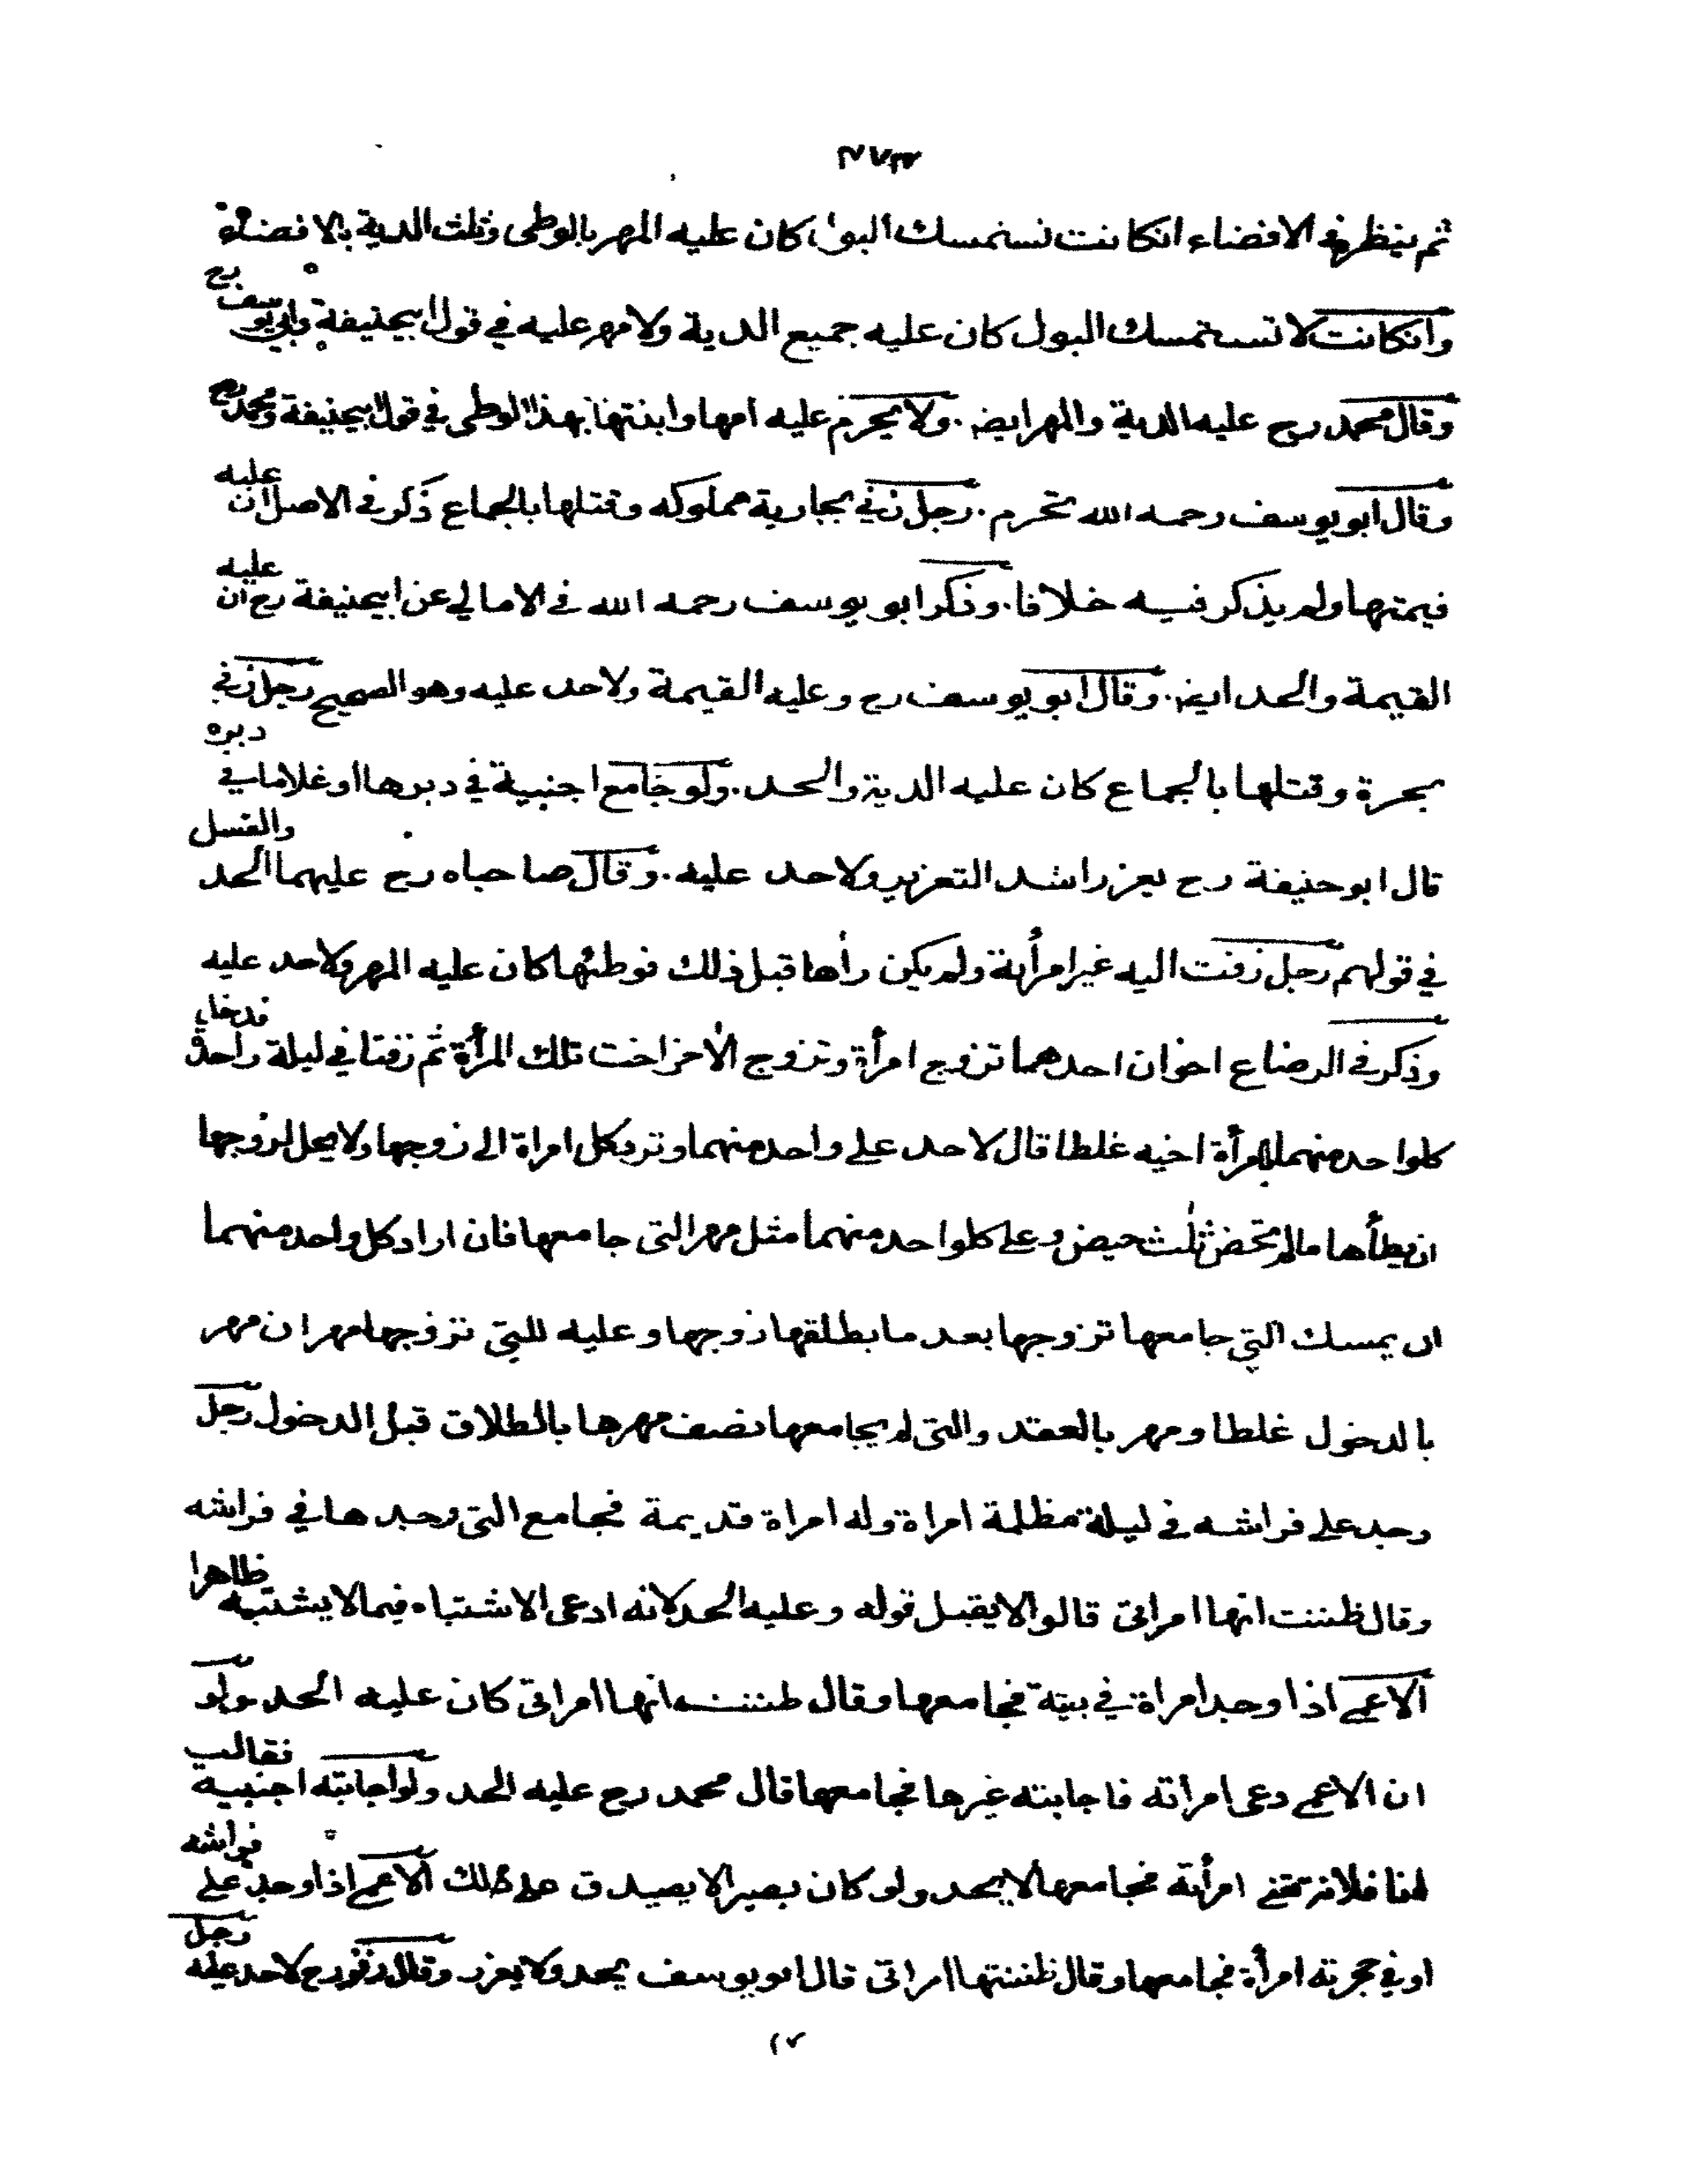 ثم ينظر في الافضاء انكانت تستمسك البول كان عليه المهر بالوطى وثلث الدية بالافضاء
وانكانت لا تستمسك البول كان عليه جميع الدية ولا مهر عليه في قول ابيحنيفة وابي يوسف رح
وقال محمد رح عليه الدية والمهر ايض . ولا يحرم عليه امها وابنتها بهذا الوطى في قول ابيحنيفة ومحمد رح
وقال ابو يوسف رحمه الله تحرم . رجل زنى بجارية مملوكه وقتلها بالجماع ذكر في الاصل ان عليه
قيمتها ولم يذكر فيه خلافا . وذكر ابو يوسف رحمه الله في الامالي عن ابيحنيفة رح ان عليه
القيمة والحد ايض . وقال ابو يوسف رح وعليه القيمة ولا حد عليه وهو الصحيح رجل زنى
بحرة وقتلها بالجماع كان عليه الدية والحد . ولو جامع اجنبية في دبرها او غلاما في دبره
قال ابو حنيفة رح يعزر اشد التعزير ولا حد عليه . وقال صاحباه رح عليهما الحد والغسل
في قولهم رجل زفت اليه غير امرأته ولم يكن رأها قبل ذلك فوطئها كان عليه المهر ولا حد عليه
وذكر في الرضاع اخوان احدهما تزوج امرأة وتزوج الأخر اخت تلك المرأة ثم زفتا في ليلة واحدة فدخل
كلواحد منهما بامرأة اخيه غلطا قال لا حد على واحد منهما وترد كل امراة الى زوجها ولا يحل لزوجها
ان يطأها مالم تحض ثلث حيض وعلى كلواحد منهما مثل مهر التى جامعها فان اراد كل واحد منهما
ان يمسك التي جامعها تزوجها بعد ما يطلقها زوجها وعليه للتي تزوجها مهران مهر
بالدخول غلطا ومهر بالعقد والتى لم يجامعها نصف مهرها بالطلاق قبل الدخول رجل
وجد على فراشه في ليلة مظلمة امراة وله امراة قديمة فجامع التى وجدها في فراشه
وقال ظننت انها امراتى قالوا لا يقبل قوله وعليه الحد لانه ادعى الاشتباه فيما لا يشتبه ظاهرا
الاعمى اذا وجد امراة في بيته فجامعها وقال ظننت انها امراتى كان عليه الحد ولو
ان الاعمى دعى امراته فاجابته غيرها فجامعها قال محمد رح عليه الحد ولو اجابته اجنبية فقالت
انا فلانة تعنى امرأته فجامعها لا يحد ولو كان بصيرا لا يصدق على ذلك الاعمى اذا وجد على فراشه
او في حجرته امرأة فجامعها وقال ظننتها امراتى قال ابو يوسف يحد ولا يعزر وقال زفر رح لا حد عليه رجل